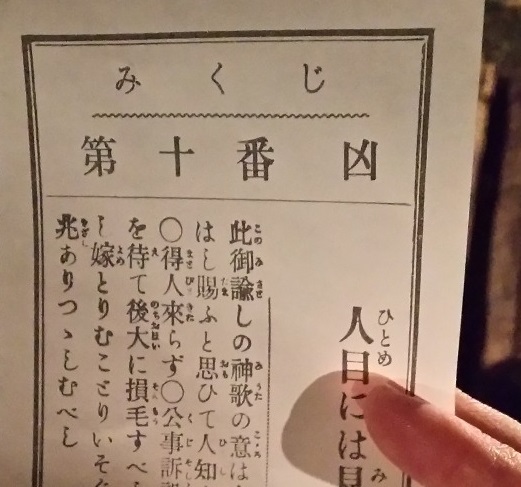 みくじ
第十番凶
人目には見
此御諭しの神歌の意は
はし賜ふと思ひて人知
〇得人來らず〇公事訴
を待て後大に損毛すべ
し嫁とりむことりいそ
兆ありつゝしむべし